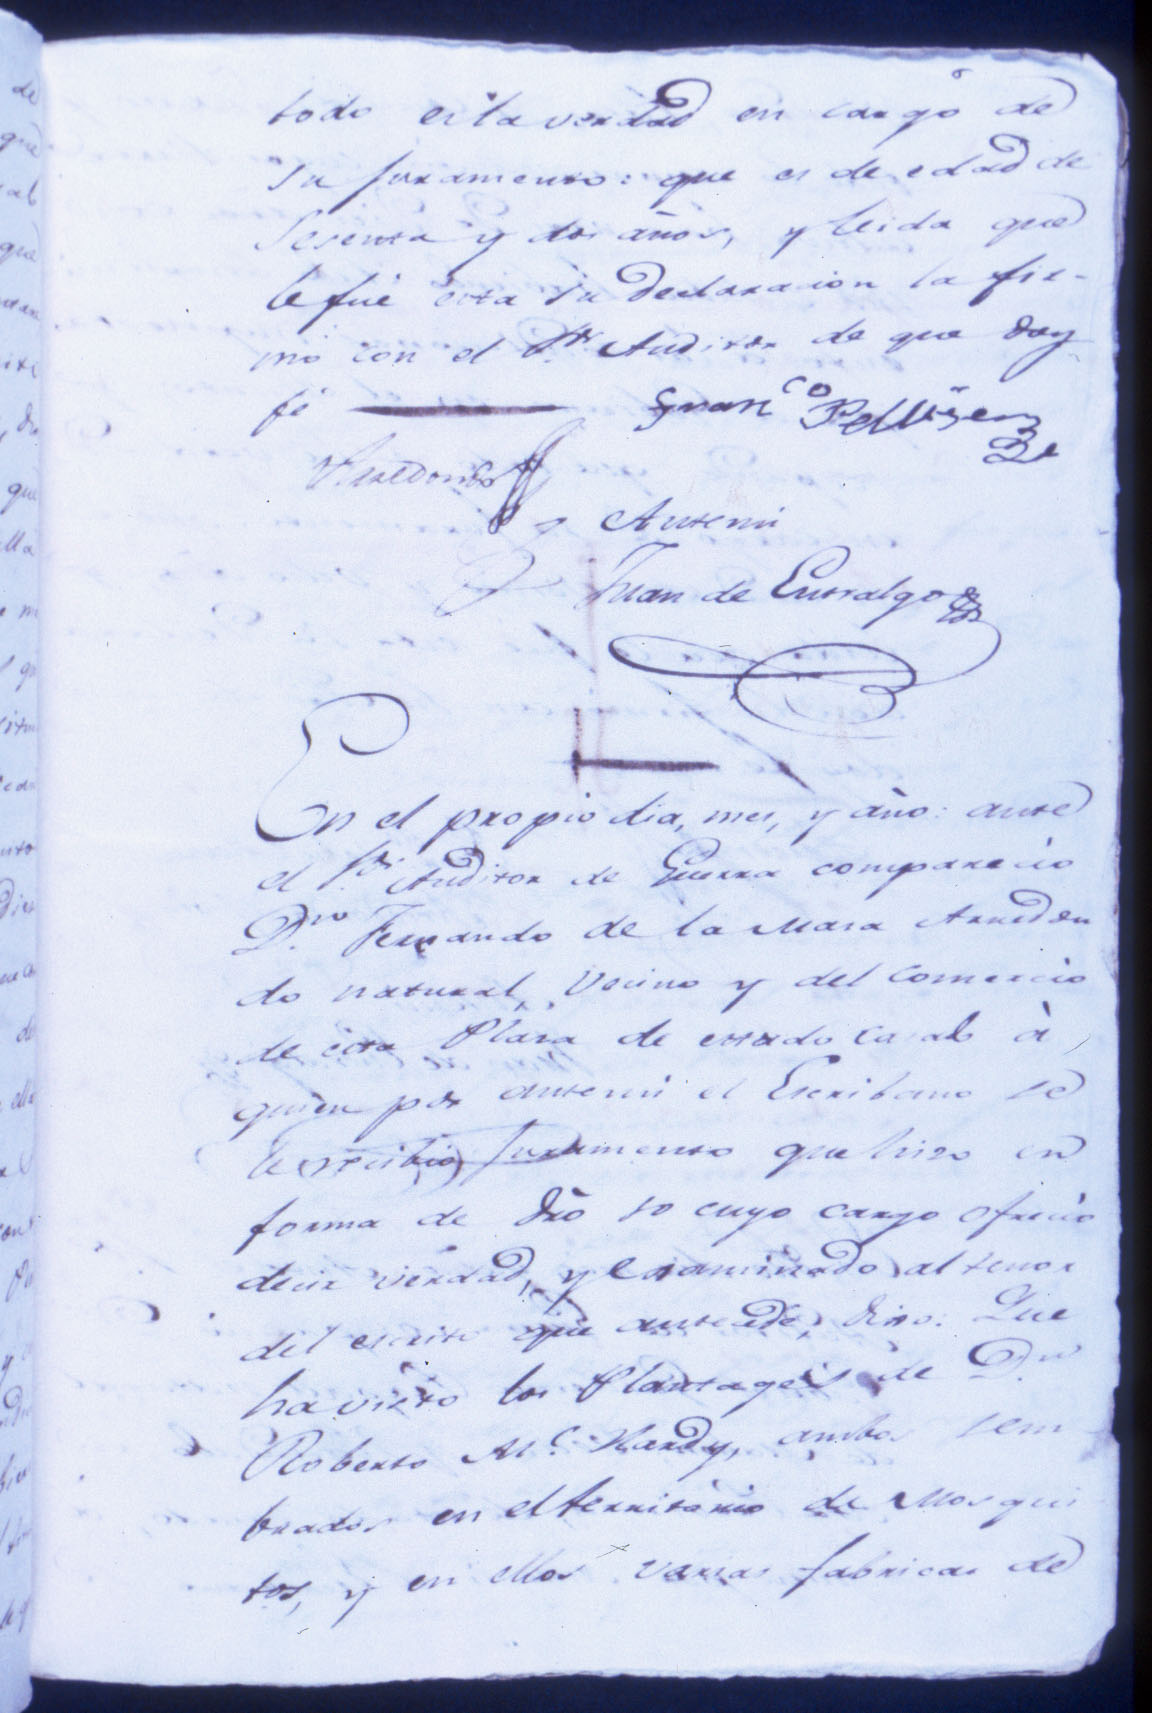 todo es la verdad en cargo de
su juramento: que es de edad de
Sesenta y dos años, y leida que
le fué esta su declaracion la fir-
mó con el Sor. Auditor de que doy
fé Franco Pellizer
Arredondo
Antemi
Juan de Entralgo
En el propio dia, mes, y año: ante
el Sor. Auditor de Guerra comparecio
Dn Fernando de la Masa Arredon
do natural, Vecino y del comercio
de ésta Plasa de estado casado à
quien por antemi el Escribano se
le recibio juramento que hiso en
forma de dro so cuyo cargo ofrecio
decir verdad, y examinado al tenor
del escrito que antecede, dixo: Que
ha visto los Plantages de Dn
Roberto Mc. Hardy, ambos sem
brados en el territorio de Mosqui
tos, y en ellos varias fabricas de